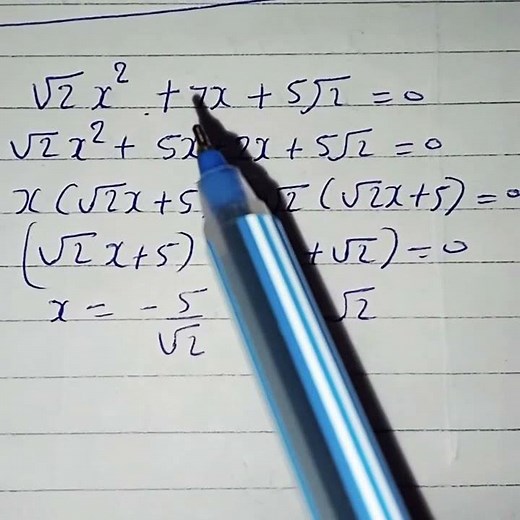 √2 x² + 7x + 5√2 = 0
√2 x² + 5x 2x + 5√2 = 0
x (√2x + 5 √2 (√2x + 5) = 0
(√2 x + 5) + √2) = 0
x = - 5/√2 √2